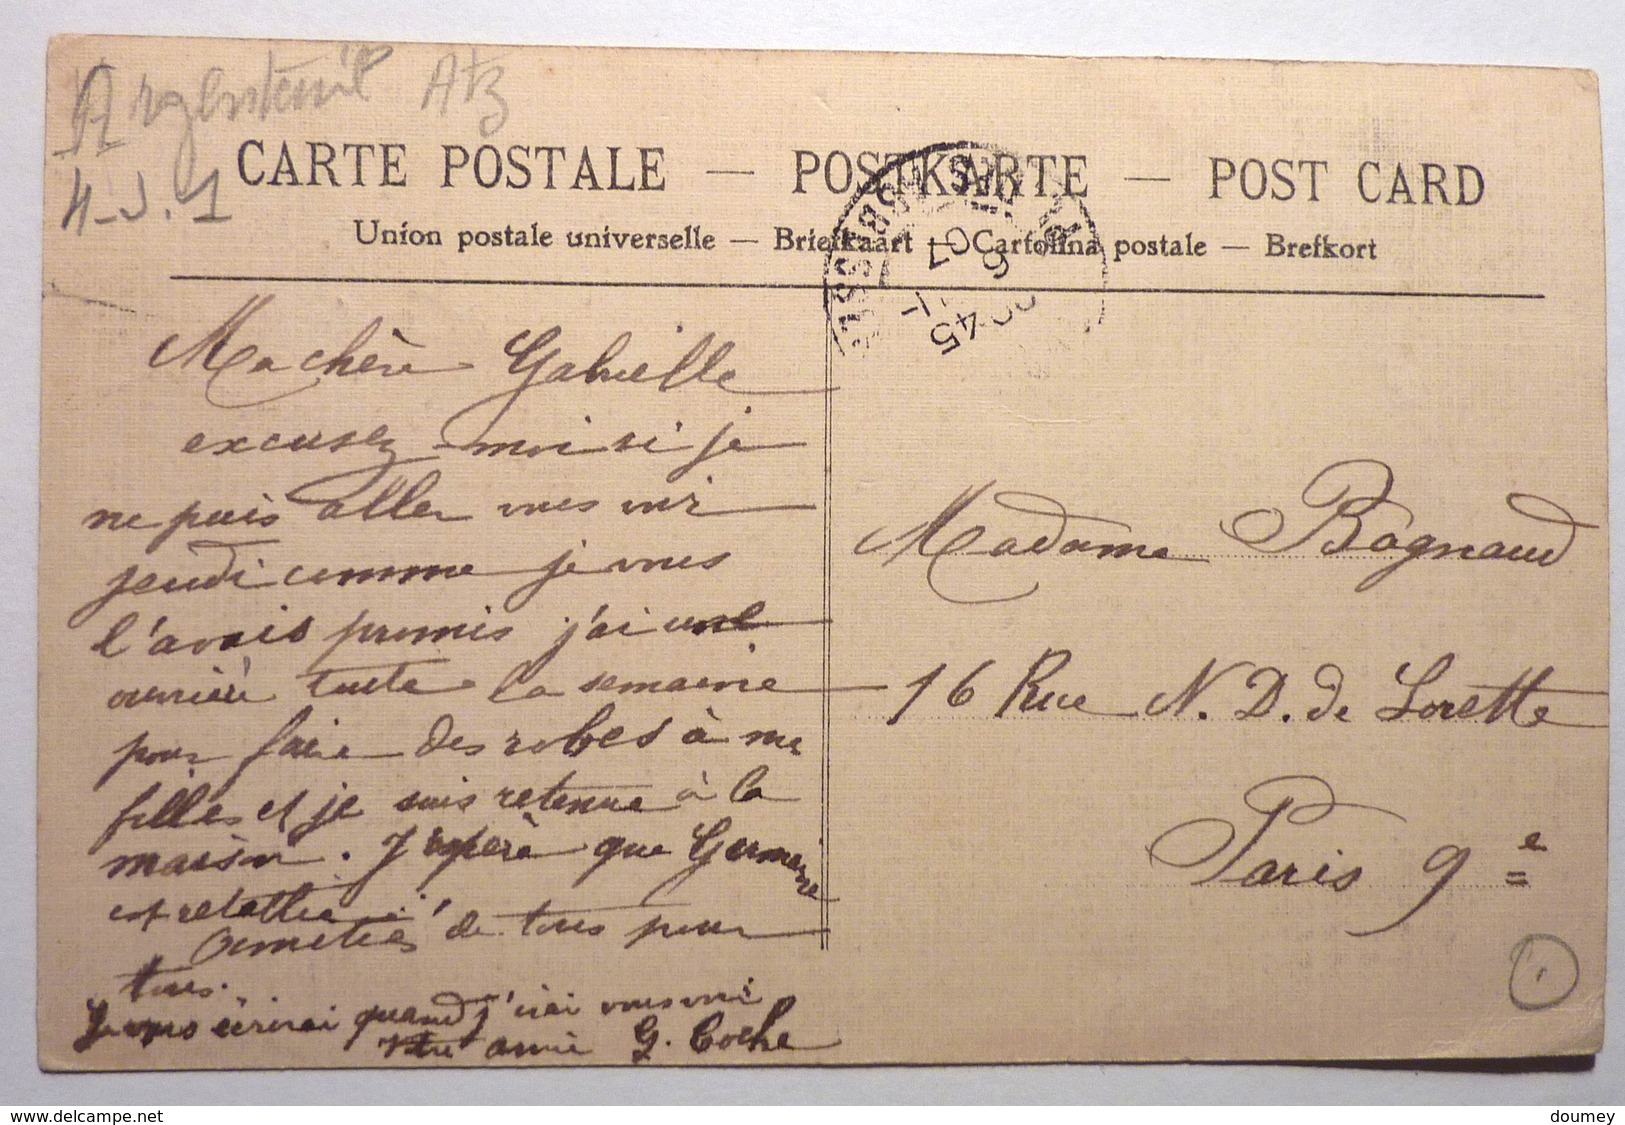 Argenteuil Atz
CARTE POSTALE — POSTKARTE — POST CARD
Union postale universelle — Briefkaart — Cartolina postale — Brefkort
Ma chère Gabrielle
excusez-moi si je
ne puis aller vous voir
jeudi comme je vous
l'avais promis j'ai une
ouvrière toute la semaine
pour faire des robes à mes
filles et je suis retenue à la
maison. J'espère que Germaine
est rétablie.
Amitiés de tous pour
tous.
Je vous écrirai quand j'irai vous voir
Votre amie G. Coche
Madame Bagnaud
16 Rue N. D. de Lorette
Paris 9e
45
6
07
doumey
www.delcampe.net